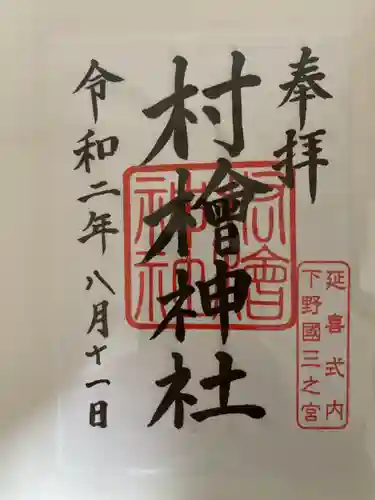 奉拝
延喜式内
下野國三之宮
村檜神社
令和二年八月十一日